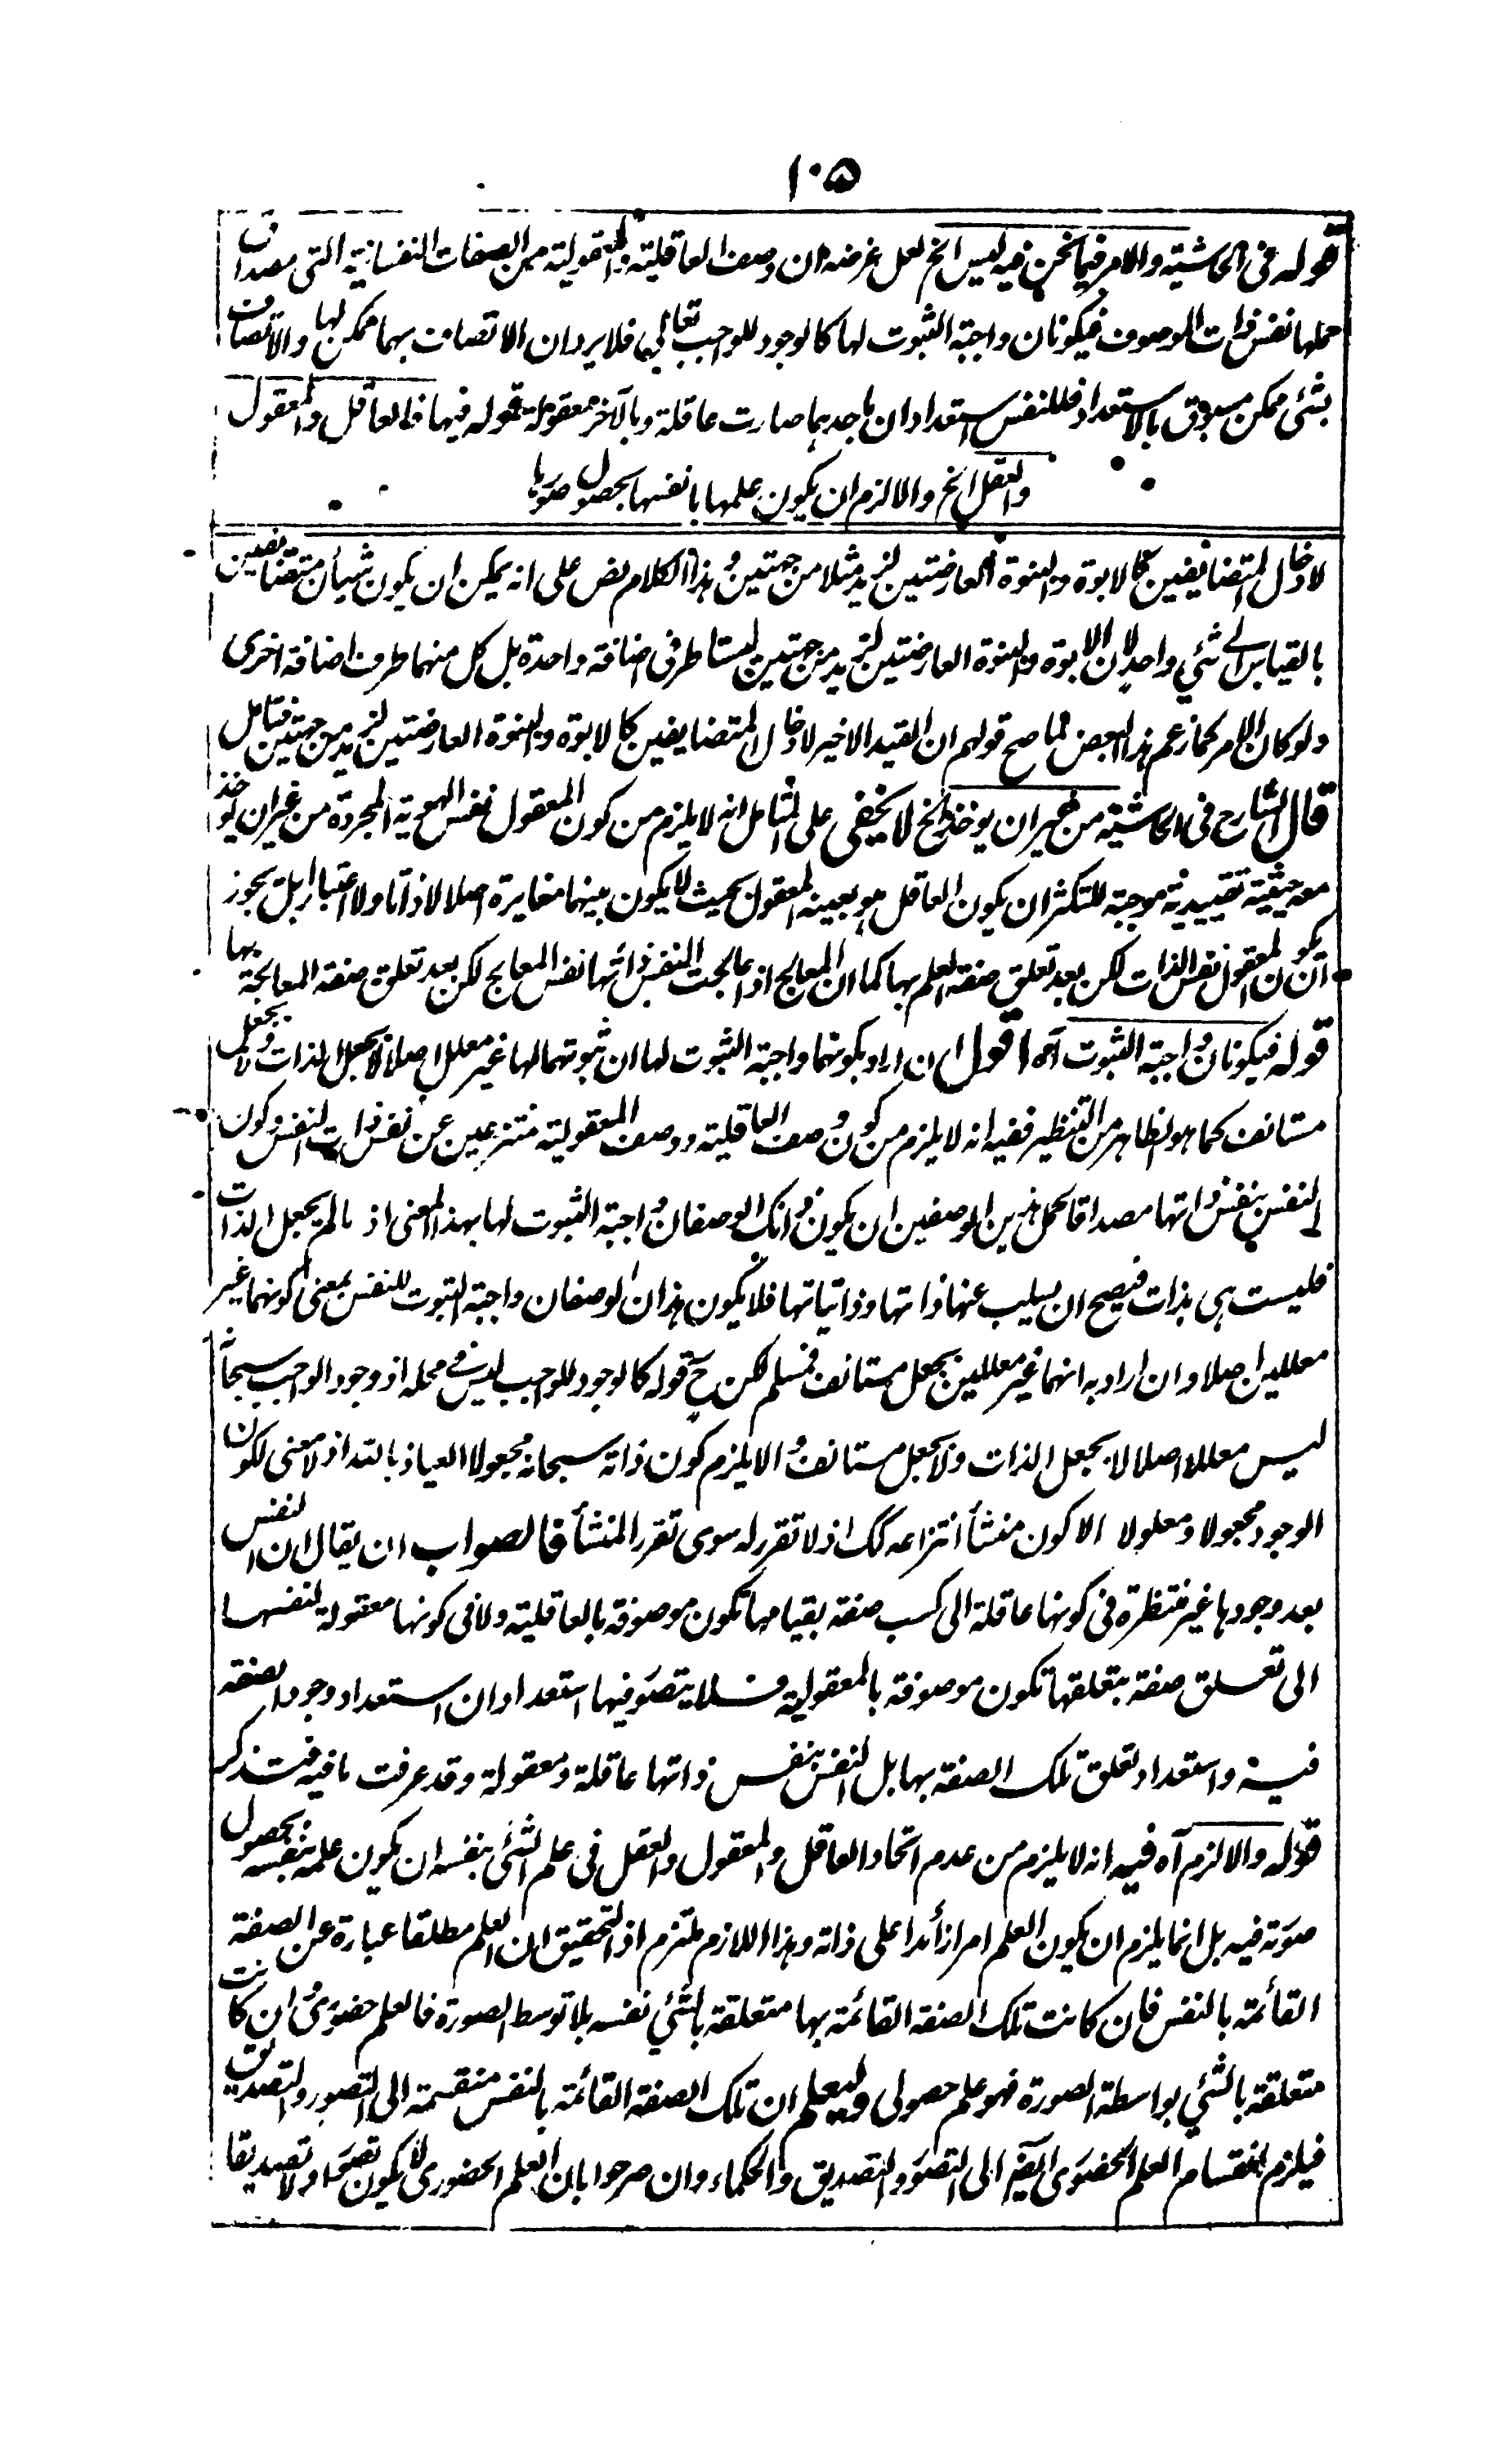 ١٠٥
قوله في الحاشية والامر فيما نحن فيه ليس الخ لعل غرضه ان وصف العاقلية والمعقولية من الصفات النفسانية التي مصداق
حملها نفس ذات الموصوف فيكونان واجبة الثبوت لها كالوجود للواجب تعالى فلا يرد ان الاتصاف بهما ممكن لها والاتصاف
بشئ ممكن مسبوق بالاستعداد فللنفس استعدادان باحدهما صارت عاقلة وبالآخر معقولة قوله فيها فالعاقل والمعقول
والعقل الخ والا لزم ان يكون علمها بانفسها بحصول صورها
لادخال المتضايفين كالابوة والبنوة العارضتين لزيد مثلا من جهتين وهذا الكلام نص على انه يمكن ان يكون شيأن متضايفين
بالقياس الى شئي واحد لان الابوة والبنوة العارضتين لزيد من جهتين ليستا طرفي اضافة واحدة بل كل منهما طرف اضافة اخرى
ولو كان الامر كما زعم هذا البعض لما صح قولهم ان القيد الاخير لادخال المتضايفين كالابوة والبنوة العارضتين لزيد من جهتين فتامل
قال الشارح في الحاشية من غير ان يوخذ الخ لا يخفى على المتامل انه لا يلزم من كون المعقول نفس الهوية المجردة من غير ان يوخذ
معه حيثية تقييدية موجبة للتكثر ان يكون العاقل هو بعينه المعقول بحيث لا يكون بينهما مغايرة اصلا لا ذاتا ولا اعتبارا بل يجوز
ان يكون المعقول نفس الذات لكن بعد تعلق صفة العلم بها كما ان المعالج اذا عالجت النفس ذاتها نفس المعالج لكن بعد تعلق صفة المعالجة بها
قوله فيكونان واجبة الثبوت آه اقول ان اراد بكونهما واجبة الثبوت لها ان ثبوتهما لها غير معلل اصلا لا بجعل الذات ولا بجعل
مستانف كما هو الظاهر من التنظير ففيه انه لا يلزم من كون وصف العاقلية ووصف المعقولية منتزعين عن نفس ذات النفس وكون
النفس بنفس ذاتها مصداقا لحمل هذين الوصفين ان يكون ذانك الوصفان واجبة الثبوت لها بهذا المعنى اذ ما لم يجعل الذات
فليست هي بذات فيصح ان يسلب عنها ذاتها وذاتياتها فلا يكون هذان الوصفان واجبة الثبوت للنفس بمعنى كونهما غير
معللين اصلا وان اراد به انهما غير معللين بجعل مستانف فمسلم لكن ح قوله كالوجود للواجب ليس في محله اذ وجود الواجب سبحانه
ليس معللا اصلا لا بجعل الذات ولا بجعل مستانف والا يلزم كون ذاته سبحانه مجعولا العياذ بالله اذ لا معنى لكون
الوجود مجعولا ومعلولا الا كون منشأ انتزاعه كك اذ لا تقرر له سوى تقرر المنشأ فالصواب ان يقال ان النفس
بعد وجودها غير منتظرة في كونها عاقلة الى كسب صفة بقيامها تكون موصوفة بالعاقلية ولا في كونها معقولة لنفسها
الى تعلق صفة بتعلقها تكون موصوفة بالمعقولية فلا يتصور فيها استعدادان استعداد وجود الصفة
فيه واستعداد تعلق تلك الصفة بها بل النفس بنفس ذاتها عاقلة ومعقولة وقد عرفت ما فيه فتذكر
قوله والا لزم آه فيه انه لا يلزم من عدم اتحاد العاقل والمعقول والعقل في علم الشئ بنفسه ان يكون علمه بنفسه بحصول
صورته فيه بل انما يلزم ان يكون العلم امرا زأدا على ذاته وهذا اللازم ملتزم اذ التحقيق ان العلم مطلقا عبارة عن الصفة
القائمة بالنفس فان كانت تلك الصفة القائمة بها متعلقة بالشئي نفسه بلا توسط الصورة فالعلم حضوري وان كانت
متعلقة بالشئي بواسطة الصورة فهو علم حصولي وليعلم ان تلك الصفة القائمة بالنفس منقسمة الى التصور والتصديق
فيلزم انقسام العلم الحضوري ايضا الى التصور والتصديق والحكماء وان صرحوا بان العلم الحضوري لا يكون تصورا ولا تصديقا